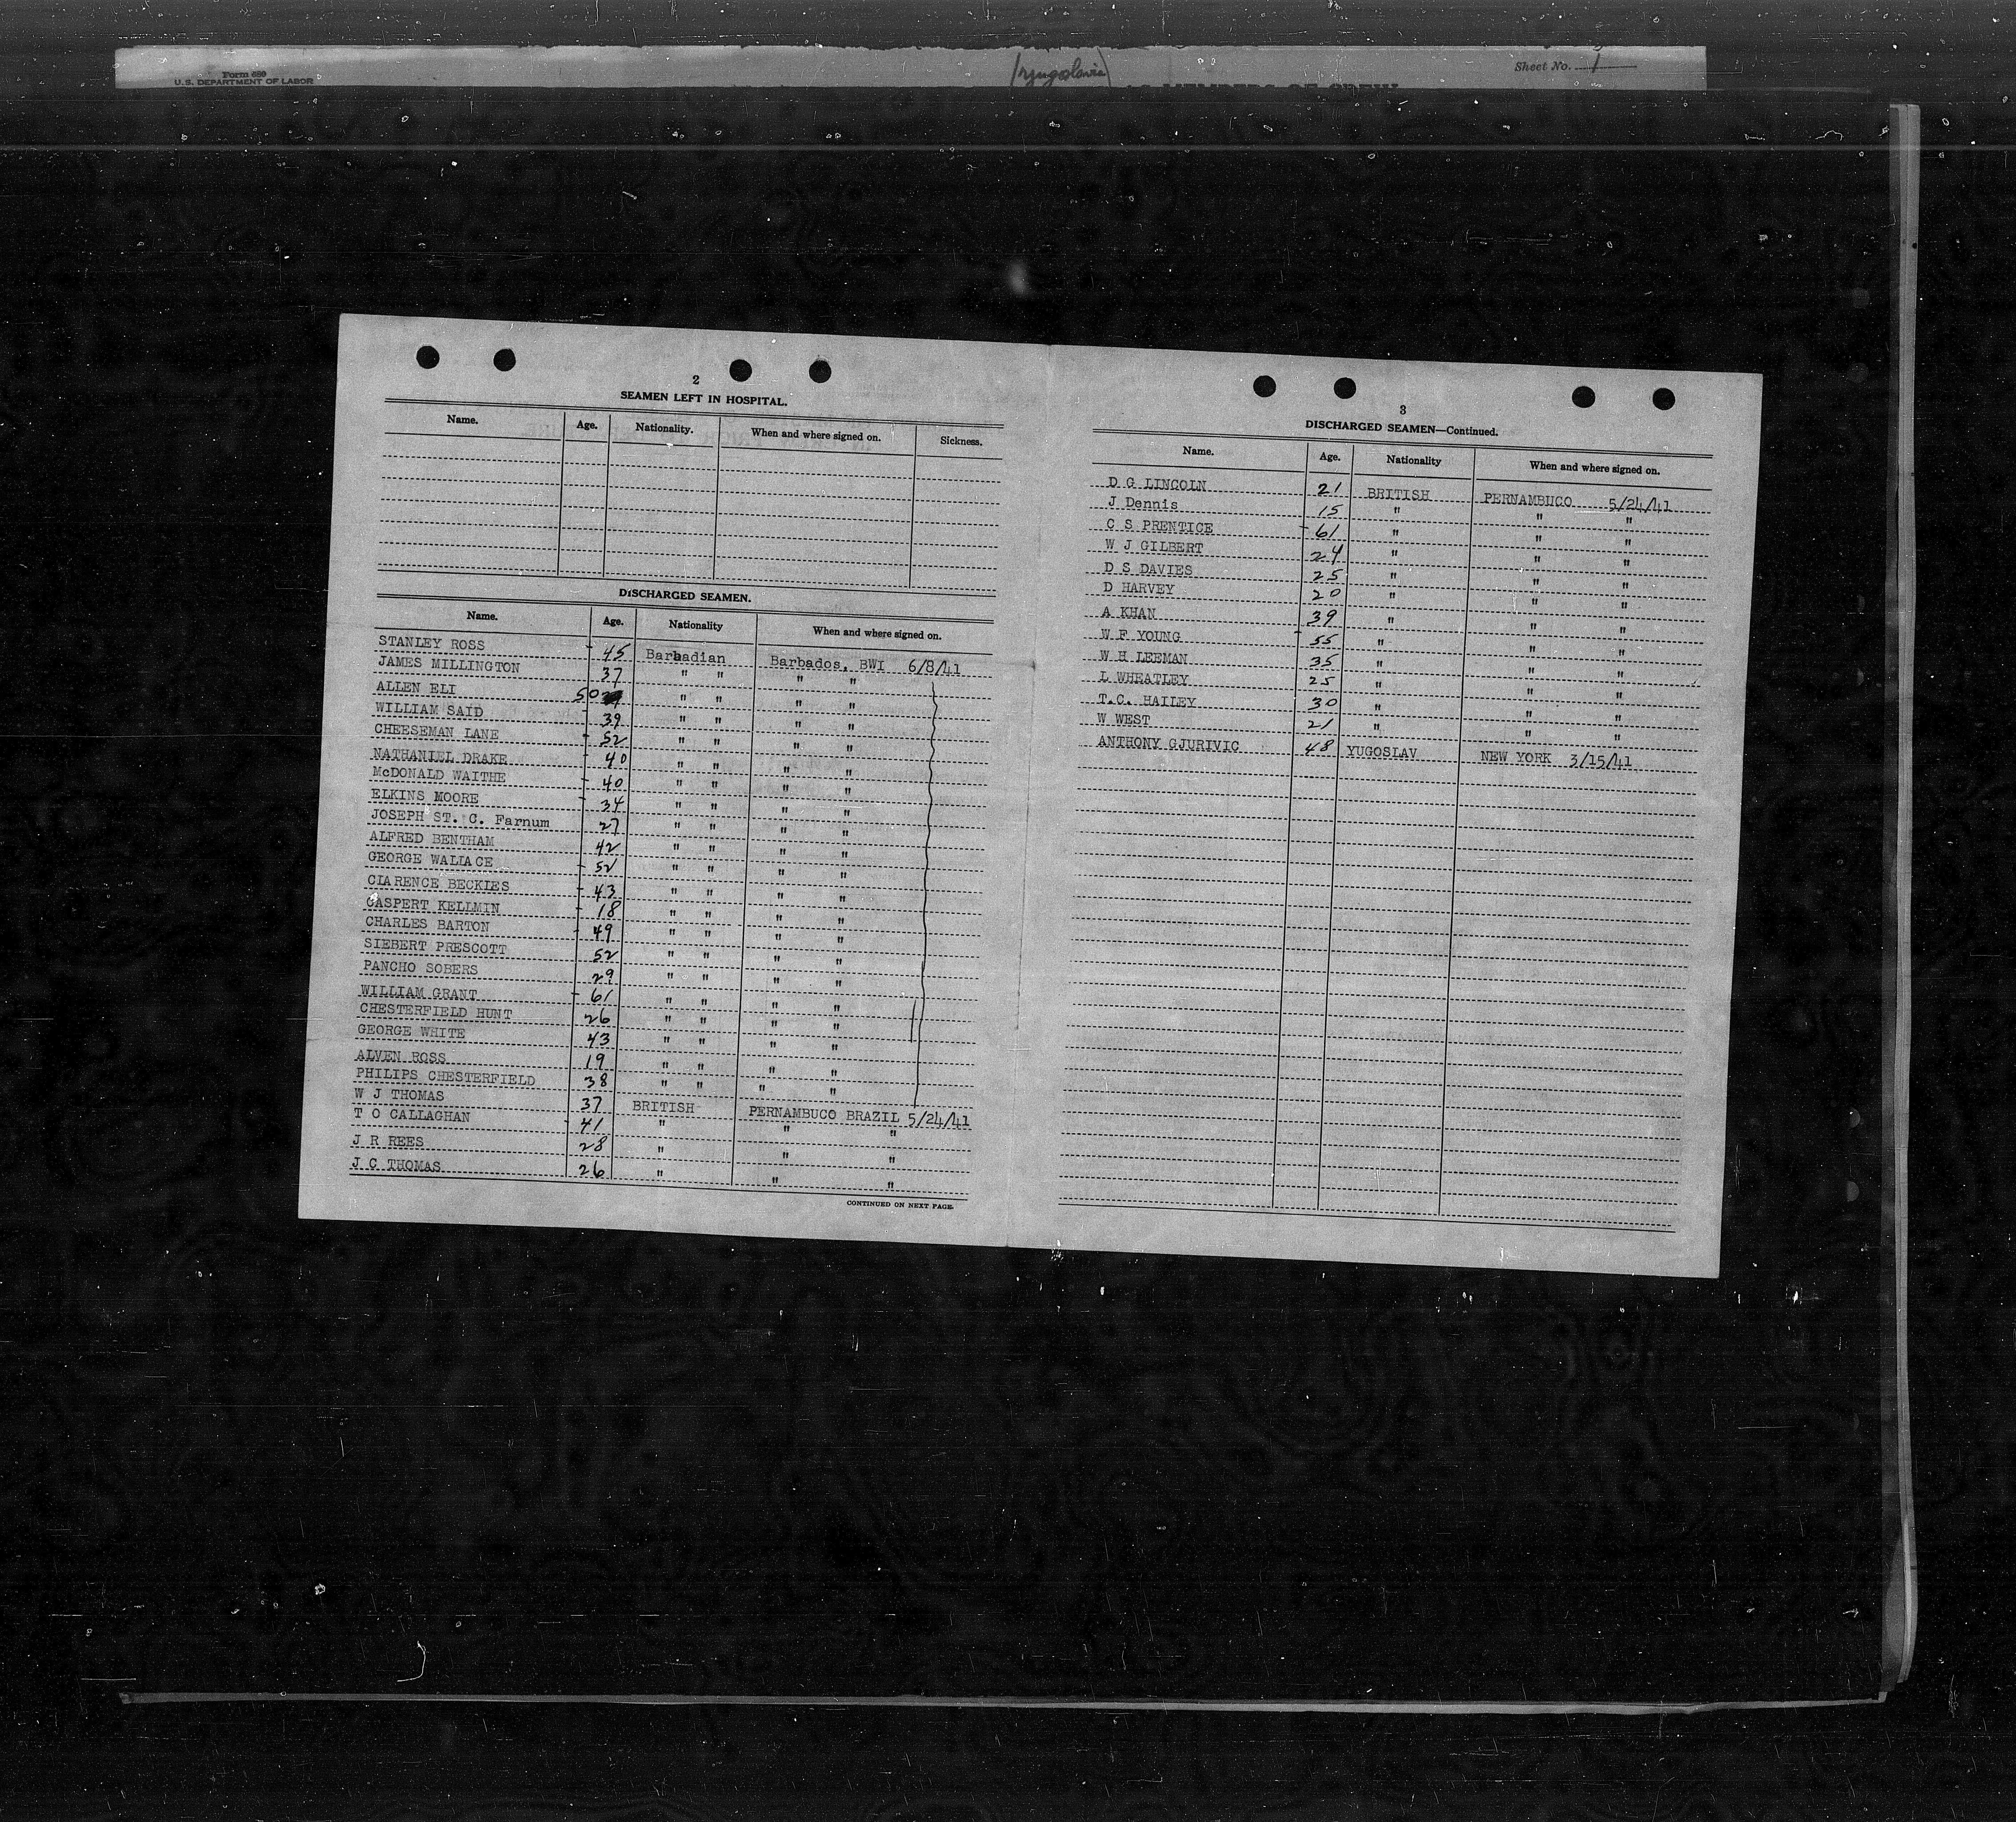 Form 680
U.S. DEPARTMENT OF LABOR
(Yugoslavia)
Sheet No. 1
AS MEMBERS OF CREW
2
SEAMEN LEFT IN HOSPITAL.
Name. Age. Nationality. When and where signed on. Sickness.
DISCHARGED SEAMEN.
Name. Age. Nationality When and where signed on.
STANLEY ROSS 45 Barbadian Barbados, BWI 6/8/41
JAMES MILLINGTON 37 " " " "
ALLEN ELI 50 " " " "
WILLIAM SAID 39 " " " "
CHEESEMAN LANE 52 " " " "
NATHANIEL DRAKE 40 " " " "
McDONALD WAITHE 40 " " " "
ELKINS MOORE 34 " " " "
JOSEPH ST. C. Farnum 27 " " " "
ALFRED BENTHAM 42 " " " "
GEORGE WALLACE 52 " " " "
CLARENCE BECKIES 43 " " " "
GASPERT KELLMIN 18 " " " "
CHARLES BARTON 49 " " " "
SIEBERT PRESCOTT 52 " " " "
PANCHO SOBERS 29 " " " "
WILLIAM GRANT 61 " " " "
CHESTERFIELD HUNT 26 " " " "
GEORGE WHITE 43 " " " "
ALVEN ROSS 19 " " " "
PHILIPS CHESTERFIELD 38 " " " "
W J THOMAS 37 BRITISH PERNAMBUCO BRAZIL 5/24/41
T O CALLAGHAN 41 " " "
J R REES 28 " " "
J C THOMAS 26 " " "
CONTINUED ON NEXT PAGE.
3
DISCHARGED SEAMEN—Continued.
Name. Age. Nationality When and where signed on.
D G LINCOLN 21 BRITISH PERNAMBUCO 5/24/41
J Dennis 15 " " "
C S PRENTICE 61 " " "
W J GILBERT 24 " " "
D S DAVIES 25 " " "
D HARVEY 20 " " "
A KHAN 39 " " "
W F YOUNG 55 " " "
W H LEEMAN 35 " " "
L WHEATLEY 25 " " "
T.C. HAILEY 30 " " "
W WEST 21 " " "
ANTHONY GJURIVIC 48 YUGOSLAV NEW YORK 3/15/41